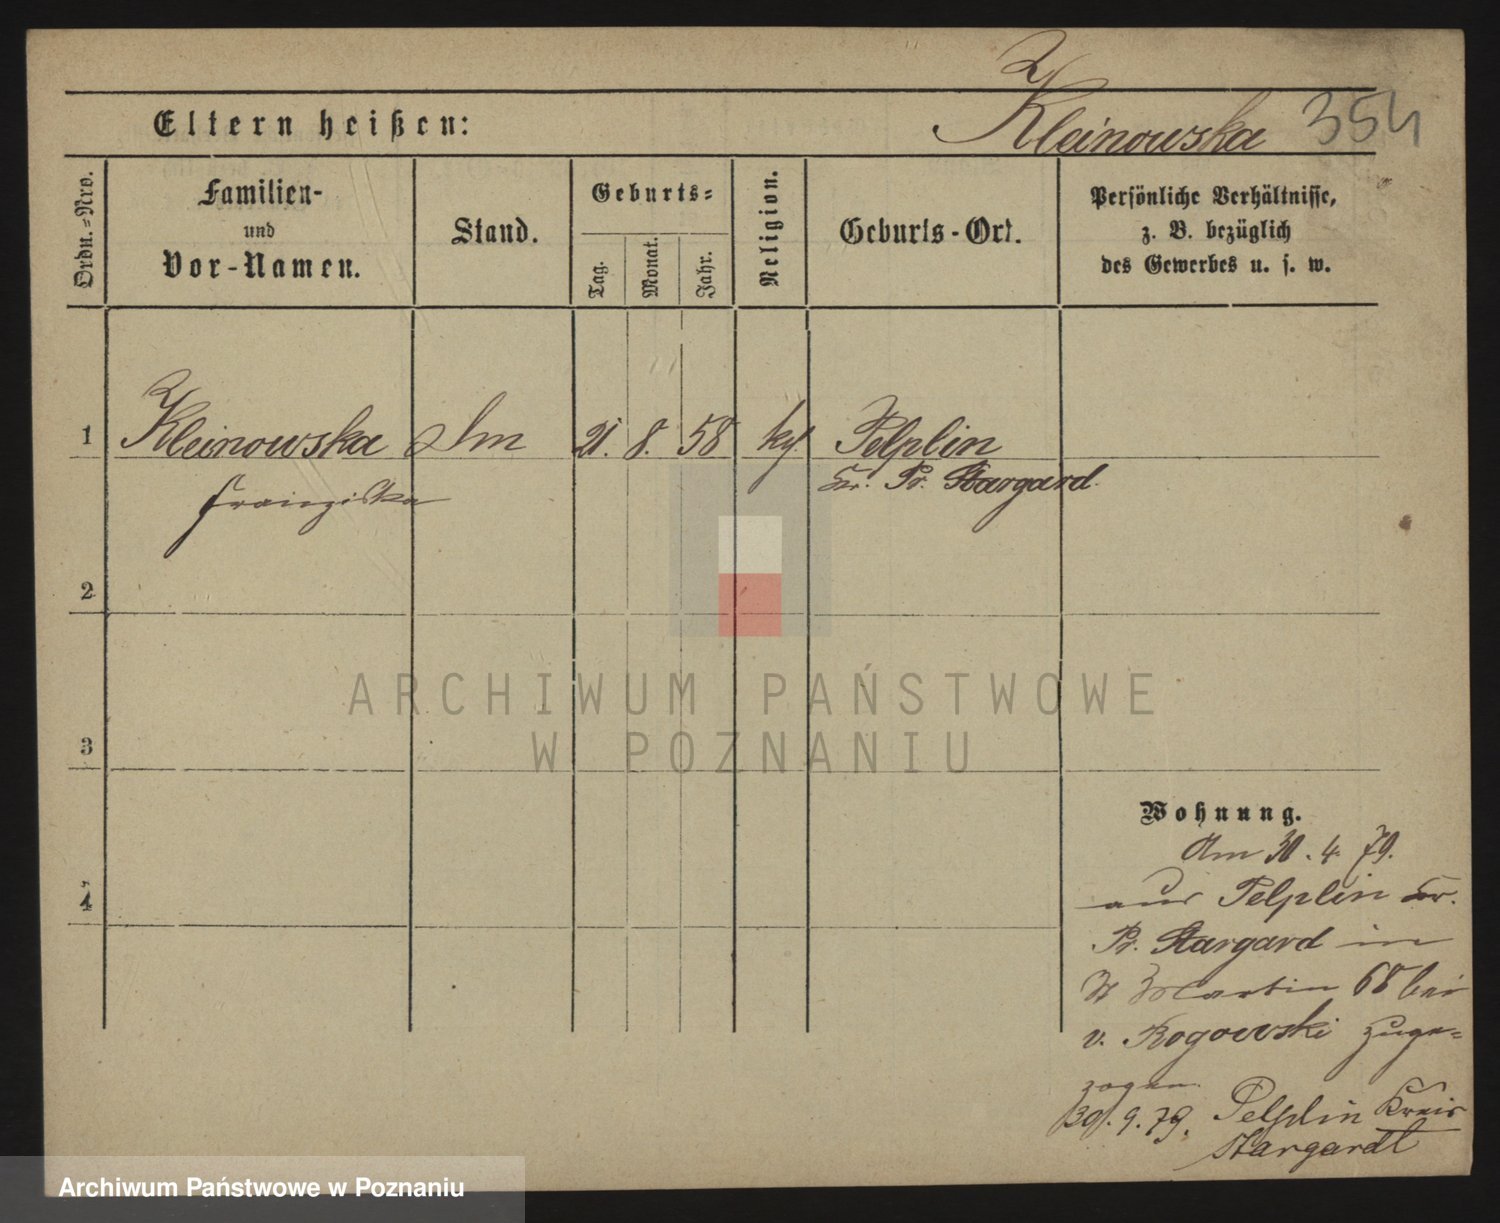 Kleinowska 354
Eltern heißen:
Ordn.-Nro.
Familien-
und
Vor-Namen.
Stand.
Geburts-
Tag.
Monat.
Jahr.
Religion.
Geburts-Ort.
Persönliche Verhältnisse,
z. B. bezüglich
des Gewerbes u. s. w.
1 Kleinowska 21. 8. 58 Pelplin
Franziska Kr. Pr. Stargard.
2
3
4
ARCHIWUM PAŃSTWOWE
W POZNANIU
Wohnung.
Am 30. 4. 79.
aus Pelplin Kr.
Pr. Stargard in
St Martin 68 bei
v. Rogowski zuge=
zogen.
30. 9. 79. Pelplin Kreis
Stargardt
Archiwum Państwowe w Poznaniu